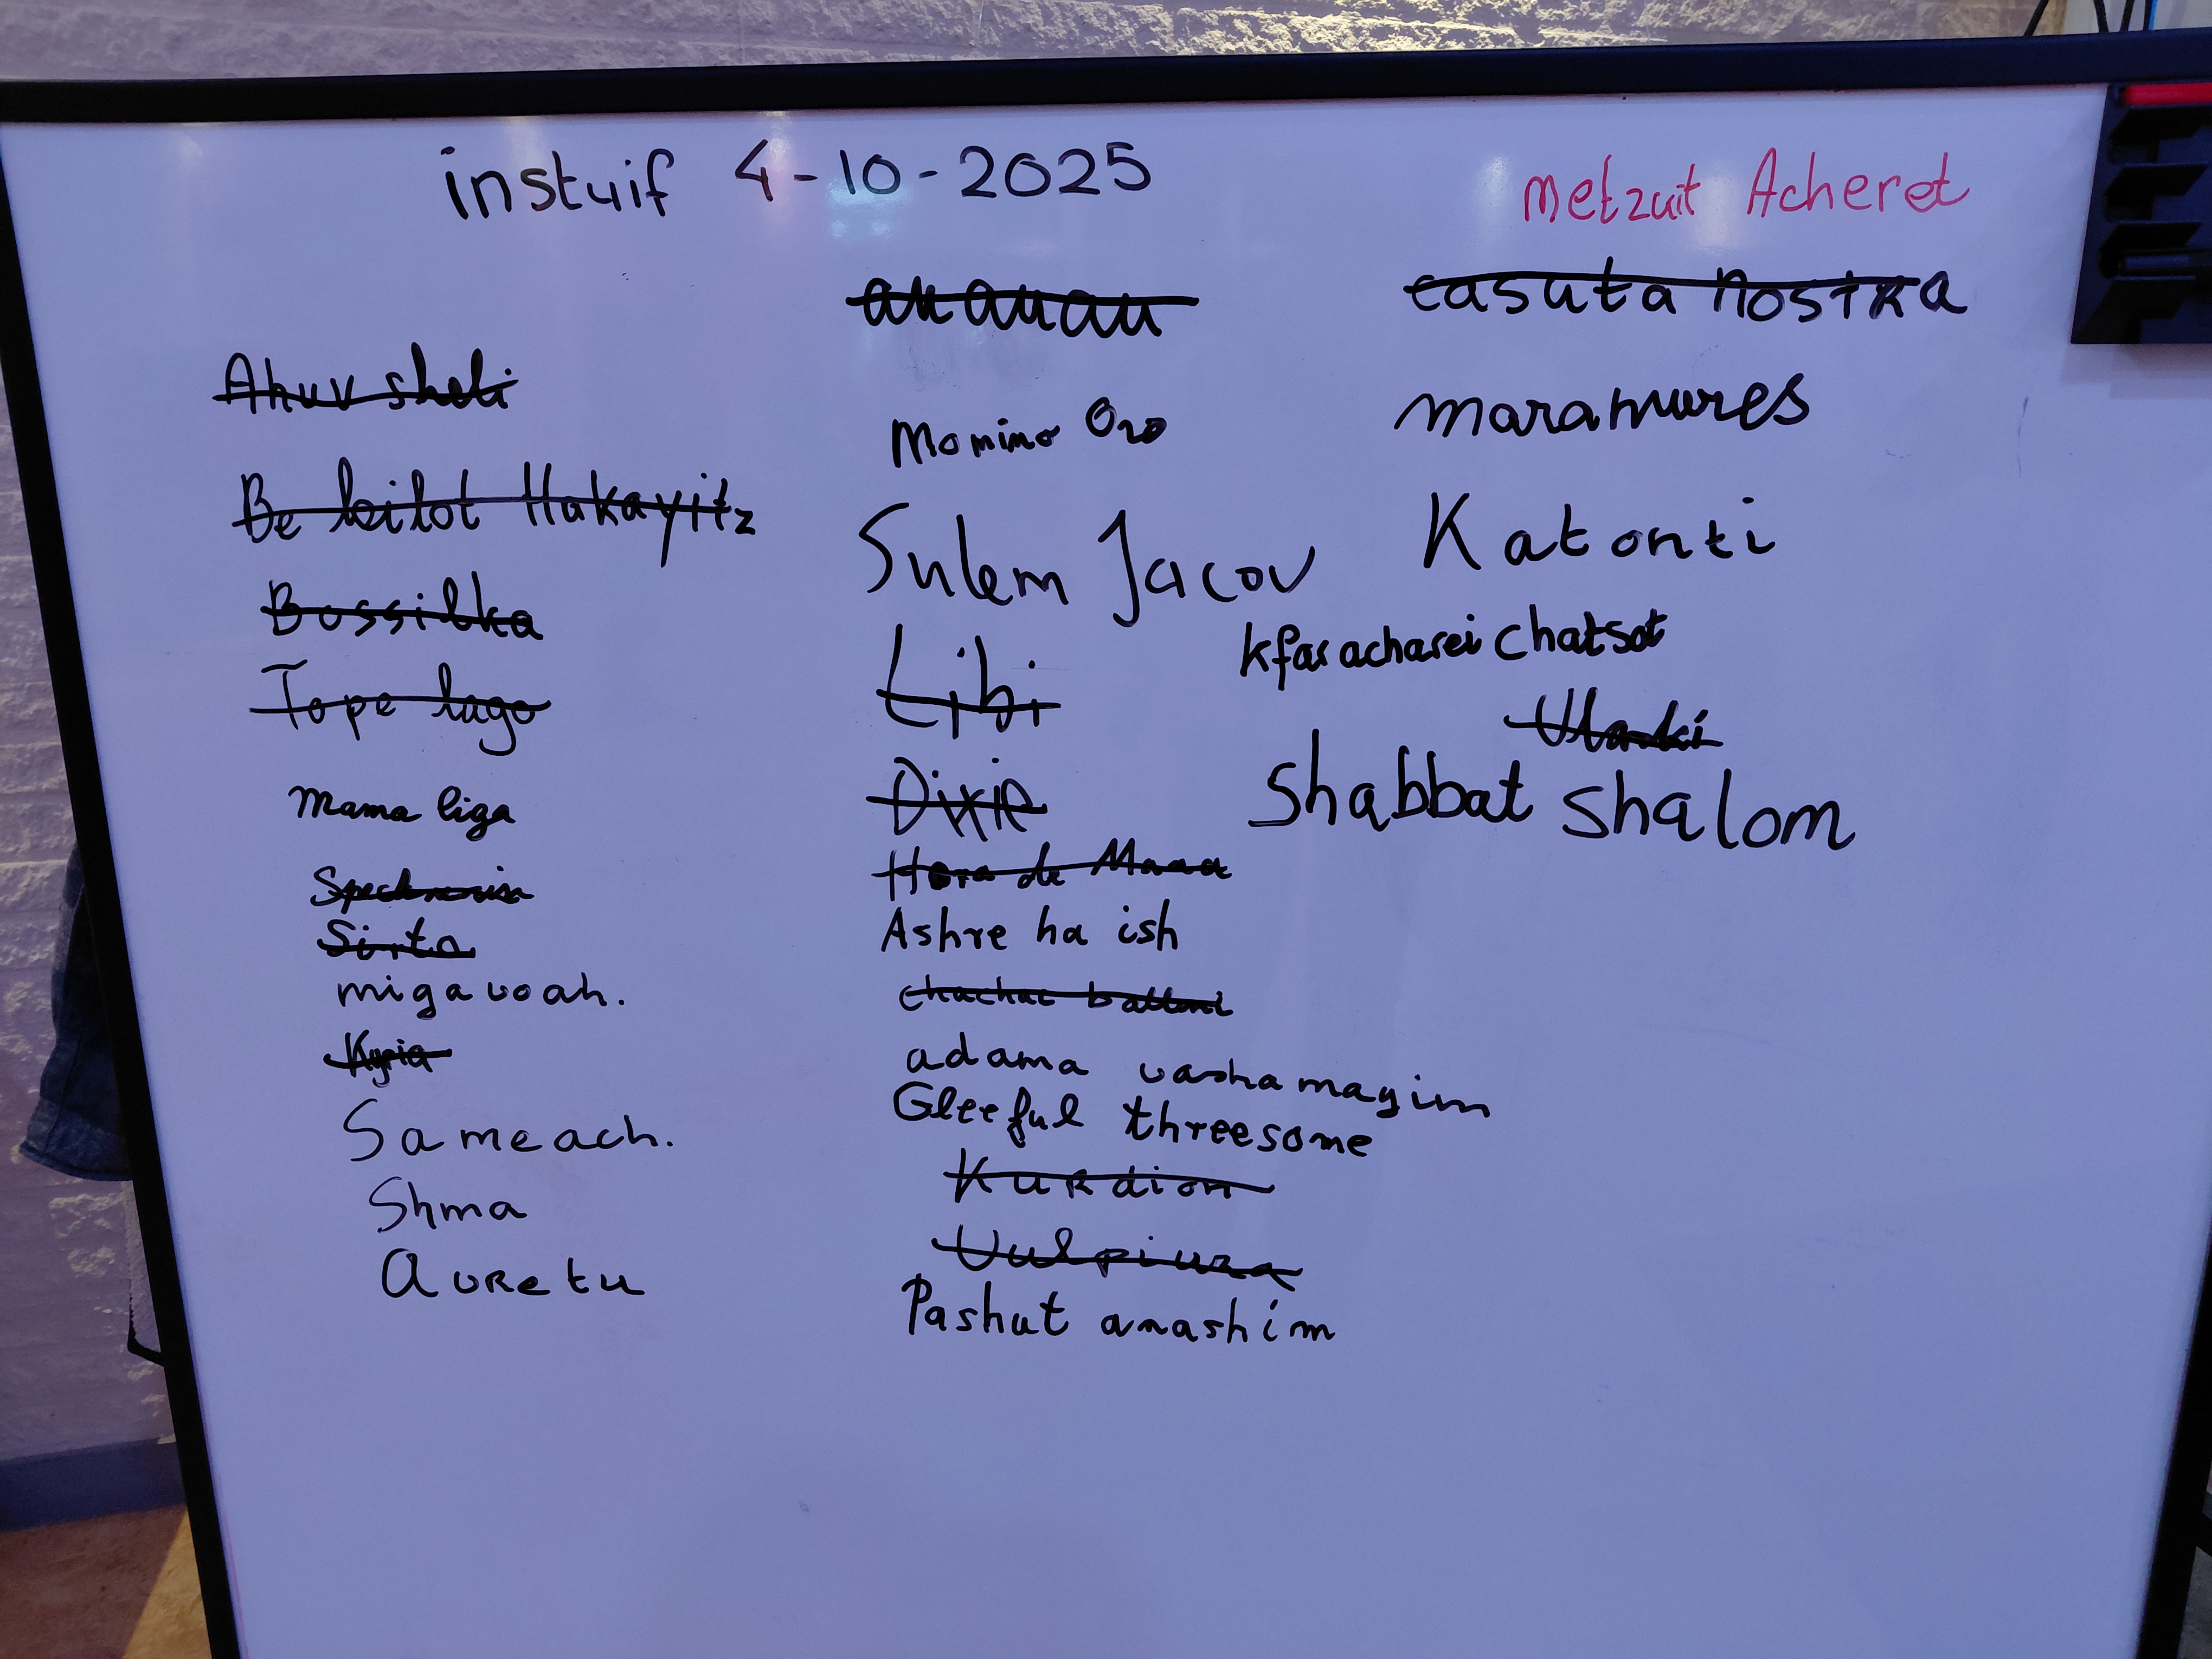 instuif 4-10-2025
metzuit Acheret
Ahuv sheli
Be leilot Hakayitz
Bossilka
Tope lago
Mama liga
Sirto
migavoah.
Kyria
Sameach.
Shma
Avretu
an anan
Momino Oro
Sulem Jacov
Libi
Dixie
Hora de Mana
Ashre ha ish
adama vasha mayim
Gleeful threesome
Kurdion
Vulpiuza
Pashut anashim
casuta nostra
maramures
Katonti
kfar acharei chatsot
Shabbat shalom